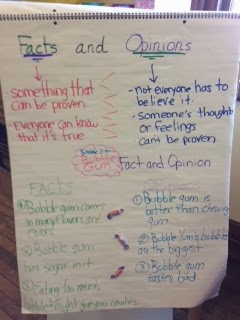 Facts and Opinions
- something that
can be proven.
- Everyone can know
that it's true
- not everyone has to
believe it.
- Someone's thoughts
or feelings
can't be proven
Bubble Gum
Fact and Opinion
FACTS
① Bubble gum comes
in many flavors and
colors
② Bubble gum
has sugar in it
③ Eating too much
① Bubble gum is
better than chewing
gum.
② Bubble Yum's bubbles
are the biggest
③ Bubble gum
tastes bad